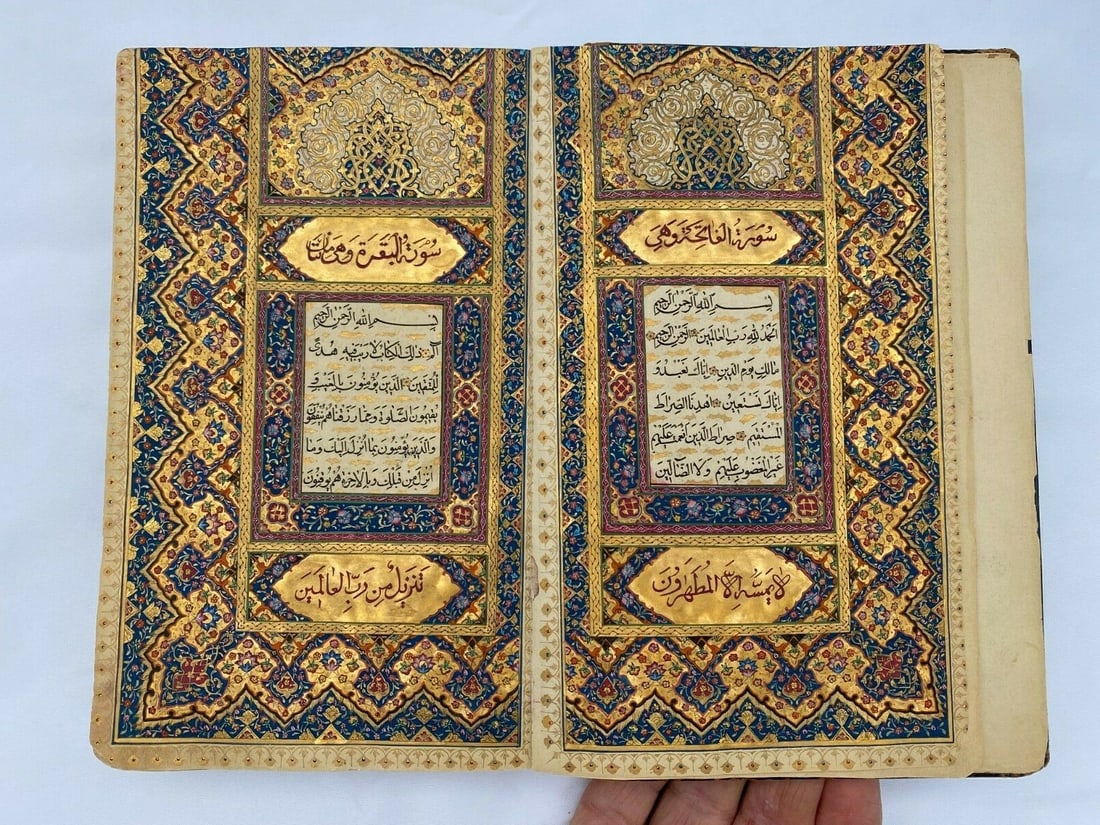 سورة الفاتحة وهي
بسم الله الرحمن الرحيم
الحمد لله رب العالمين الرحمن الرحيم
مالك يوم الدين اياك نعبد و
اياك نستعين اهدنا الصراط
المستقيم صراط الذين انعمت عليهم
غير المغضوب عليهم ولا الضالين
لا يمسه الا المطهرون
سورة البقرة وهى مائتان
بسم الله الرحمن الرحيم
الم ذلك الكتاب لا ريب فيه هدى
للمتقين الذين يؤمنون بالغيب و
يقيمون الصلوة ومما رزقناهم ينفقون
والذين يؤمنون بما انزل اليك وما
انزل من قبلك وبالاخرة هم يوقنون
تنزيل من رب العالمين